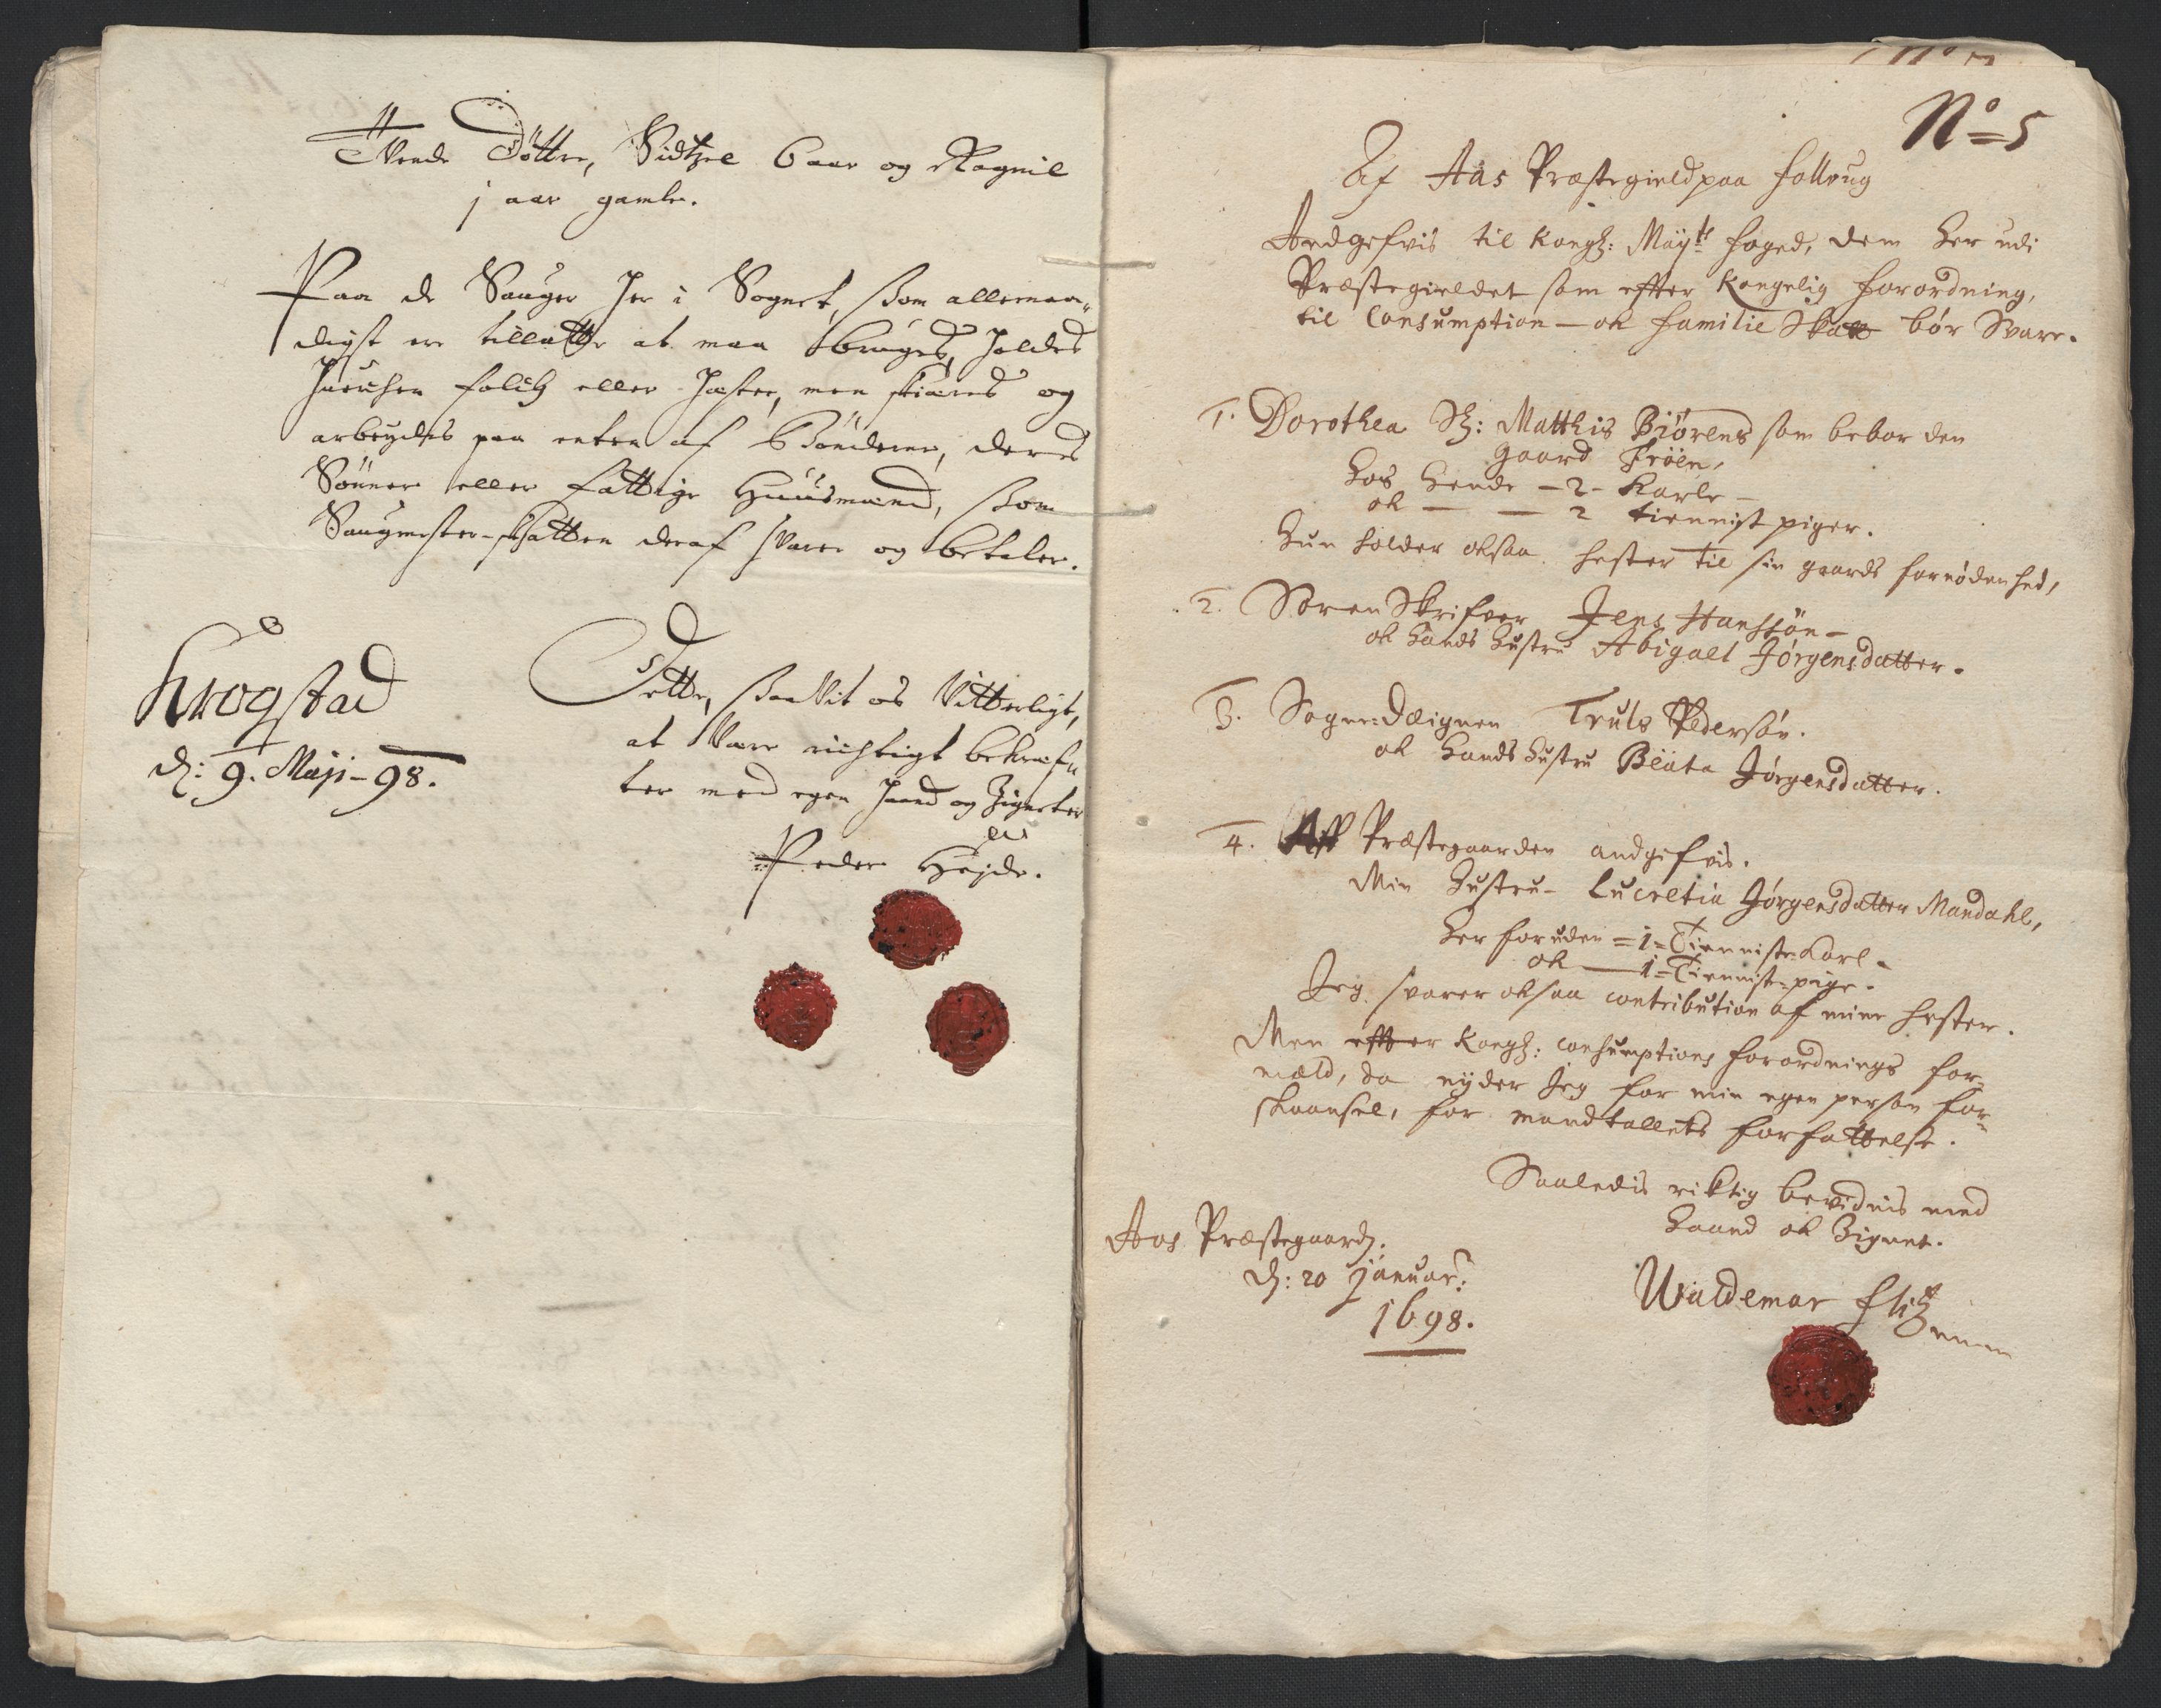 Tvende Døttre, Sidtzel 6 aar og Ragnil
j aar gamle.
Paa de Sauger her i Sognet, som allernaa-
digst ere tilladte at maa bruges, holdes
huerchen folch eller hester, men skiæres og
arbeydes paa enten af Bønderne, deres
Sønner eller fattige Huusmænd, som
Saugmester-skatten deraf svarer og betaler.
Krogstad
d: 9. Maji-98.
Dette, saavit os Vitterligt,
at Være richtigt bekræf-
ter med egen haand og Zigneter
Peder Hejde.
No=5
Af Aas Præstegield paa folloug
Andgifvis til Kongl: Mayts foged, dem her udi
Præstegieldet som efter Kongelig forordning,
til Consumption- ok familie Skatt bør Svare.
1. Dorothea Sl: Matthis Biørens som bebor den
gaard Frøen,
hos hende -2- Karle-
ok — — 2 tiennist piger.
hun holder oksaa hester til sin gaards fornødenhed,
2. Soren Skrifver Jens Hanssøn-
ok hands hustru Abigael Jørgensdatter.
3. Sogne-Deignen Truls Pedersøn.
ok hands hustru Beata Jørgensdatter.
4. Af Præstegaarden andgifvis.
Min hustru- Lucretia Jørgensdatter Mandahl,
her foruden =1= Tienniste-Karl-
ok —1= Tienniste-pige.
Jeg svarer oksaa contribution af mine hester.
Men efter Kongl: consumptions forordnings for-
mæld, da nyder Jeg for min egen person for-
skaansel, for mandtallets forfattelse.
Saaledis riktig bevidnis med
haand ok Zignet.
Aas Præstegaard,
d: 20 januar:
1698.
Waldemar